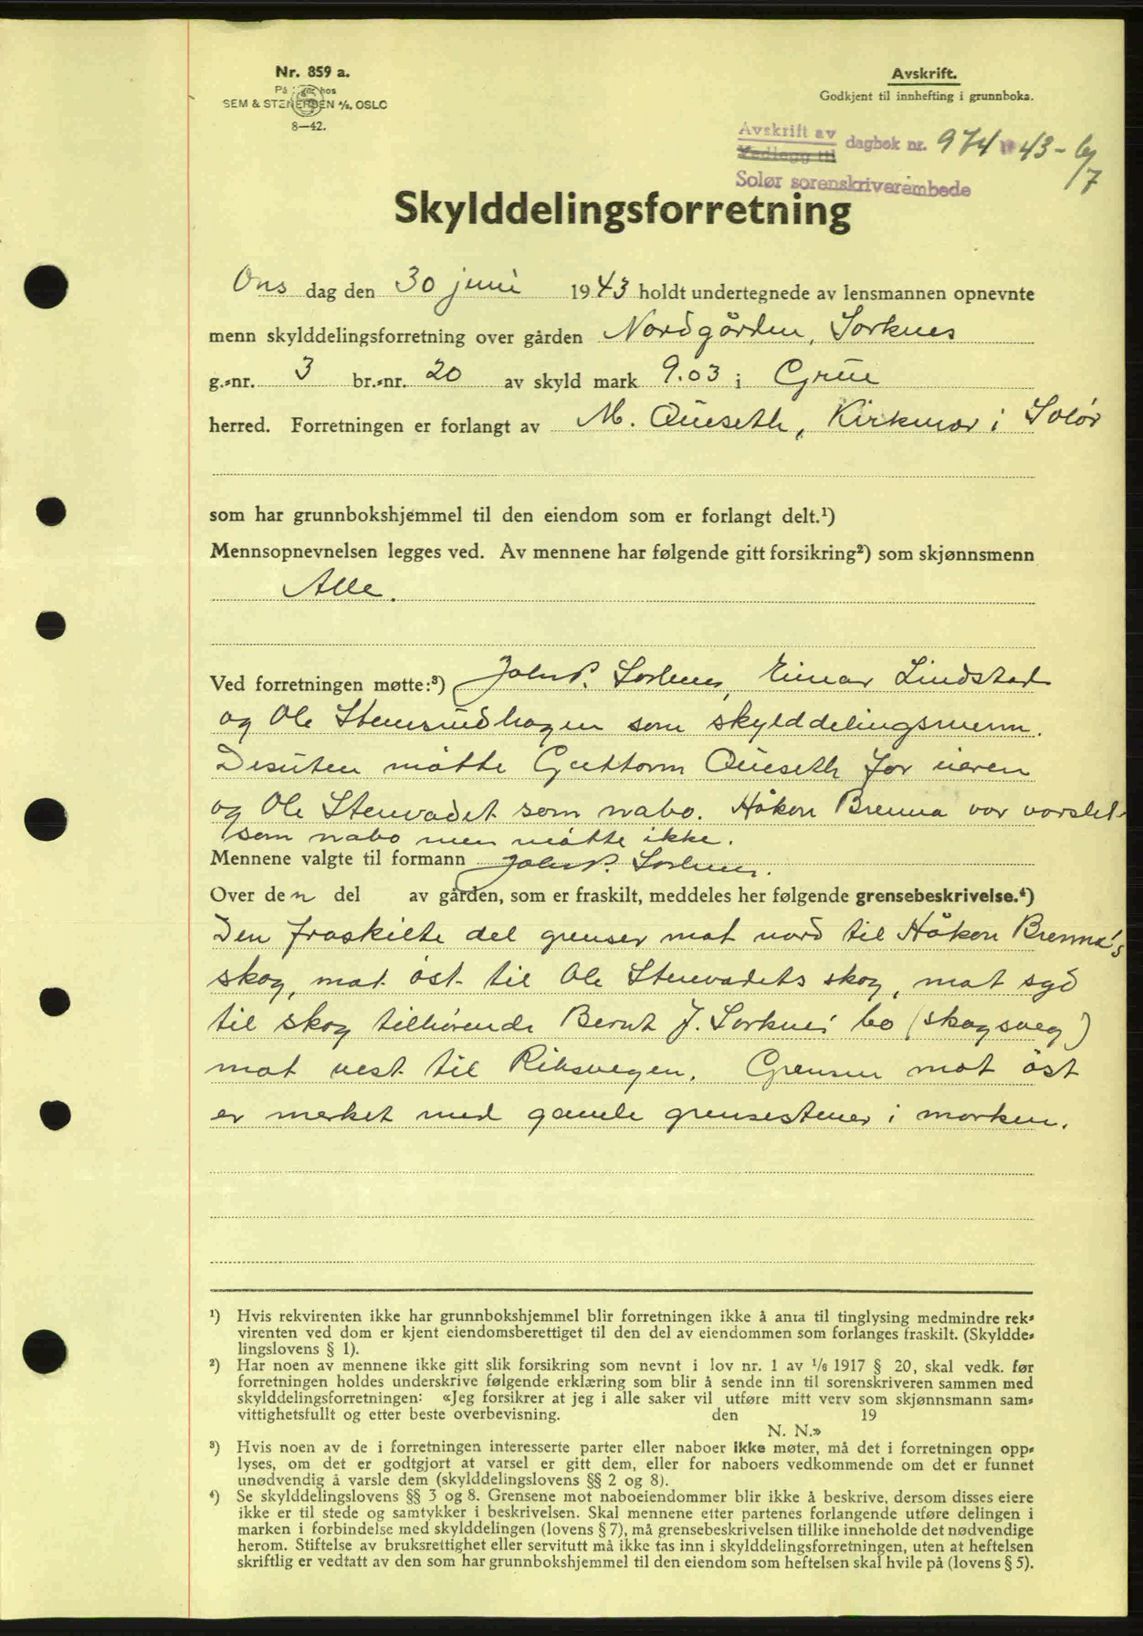 Nr. 859 a.
På lager hos
SEM & STENERSEN A/S, OSLO
8—42.
Avskrift.
Godkjent til innhefting i grunnboka.
Avskrift av
Vedlegg til
dagbok nr. 974 19 43 - 6/7
Solør sorenskriverembede
Skylddelingsforretning
Ons dag den 30 juni 1943 holdt undertegnede av lensmannen opnevnte
menn skylddelingsforretning over gården Nordgården, Sorknes
g.-nr. 3 br.-nr. 20 av skyld mark 9.03 i Grue
herred. Forretningen er forlangt av M. Queseth, Kirkenær i Solør
som har grunnbokshjemmel til den eiendom som er forlangt delt.¹)
Mennsopnevnelsen legges ved. Av mennene har følgende gitt forsikring²) som skjønnsmenn
Alle.
Ved forretningen møtte:³) Johs P. Sorknes, Einar Lindstad
og Ole Stemsrudhagen som skylddelingsmenn.
Desuten møtte Guttorm Queseth for eieren
og Ole Stenvadet som nabo. Håkon Brenna var varslet
som nabo men møtte ikke.
Mennene valgte til formann Johs P. Sorknes.
Over den del av gården, som er fraskilt, meddeles her følgende grensebeskrivelse.⁴)
Den fraskilte del grenser mot nord til Håkon Brenna's
skog, mot øst til Ole Stenvadets skog, mot syd
til skog tilhørende Bernt J. Sorknes' bo (skogsveg)
mot vest til Riksvegen. Grensen mot øst
er merket med gamle grensestener i marken.
¹) Hvis rekvirenten ikke har grunnbokshjemmel blir forretningen ikke å anta til tinglysing medmindre rek-
virenten ved dom er kjent eiendomsberettiget til den del av eiendommen som forlanges fraskilt. (Skyldde-
lingslovens § 1).
²) Har noen av mennene ikke gitt slik forsikring som nevnt i lov nr. 1 av 1/6 1917 § 20, skal vedk. før
forretningen holdes underskrive følgende erklæring som blir å sende inn til sorenskriveren sammen med
skylddelingsforretningen: «Jeg forsikrer at jeg i alle saker vil utføre mitt verv som skjønnsmann sam-
vittighetsfullt og etter beste overbevisning. den 19
N. N.»
³) Hvis noen av de i forretningen interesserte parter eller naboer ikke møter, må det i forretningen opp-
lyses, om det er godtgjort at varsel er gitt dem, eller for naboers vedkommende om det er funnet
unødvendig å varsle dem (skylddelingslovens §§ 2 og 8).
⁴) Se skylddelingslovens §§ 3 og 8. Grensene mot naboeiendommer blir ikke å beskrive, dersom disses eiere
ikke er til stede og samtykker i beskrivelsen. Skal mennene etter partenes forlangende utføre delingen i
marken i forbindelse med skylddelingen (lovens § 7), må grensebeskrivelsen tillike inneholde det nødvendige
herom. Stiftelse av bruksrettighet eller servitutt må ikke tas inn i skylddelingsforretningen, uten at heftelsen
skriftlig er vedtatt av den som har grunnbokshjemmel til den eiendom som heftelsen skal hvile på (lovens § 5).